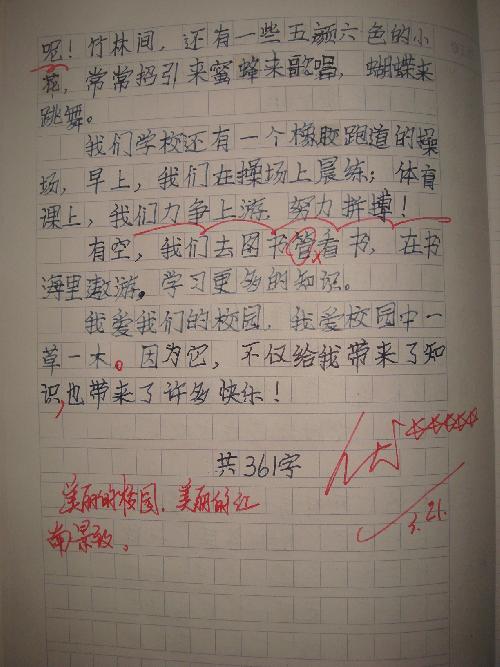 呢！竹林间，还有一些五颜六色的小
花，常常招引来蜜蜂来歌唱，蝴蝶来
跳舞。
我们学校还有一个橡胶跑道的操
场，早上，我们在操场上晨练；体育
课上，我们力争上游，努力拼搏！
有空，我们去图书管看书，在书
海里遨游。学习更多的知识。
我爱我们的校园，我爱校园中一
草一木。因为它，不仅给我带来了知
识，也带来了许多快乐！
共361字
优
美丽的校园，美丽的红
南景致。
3.21.